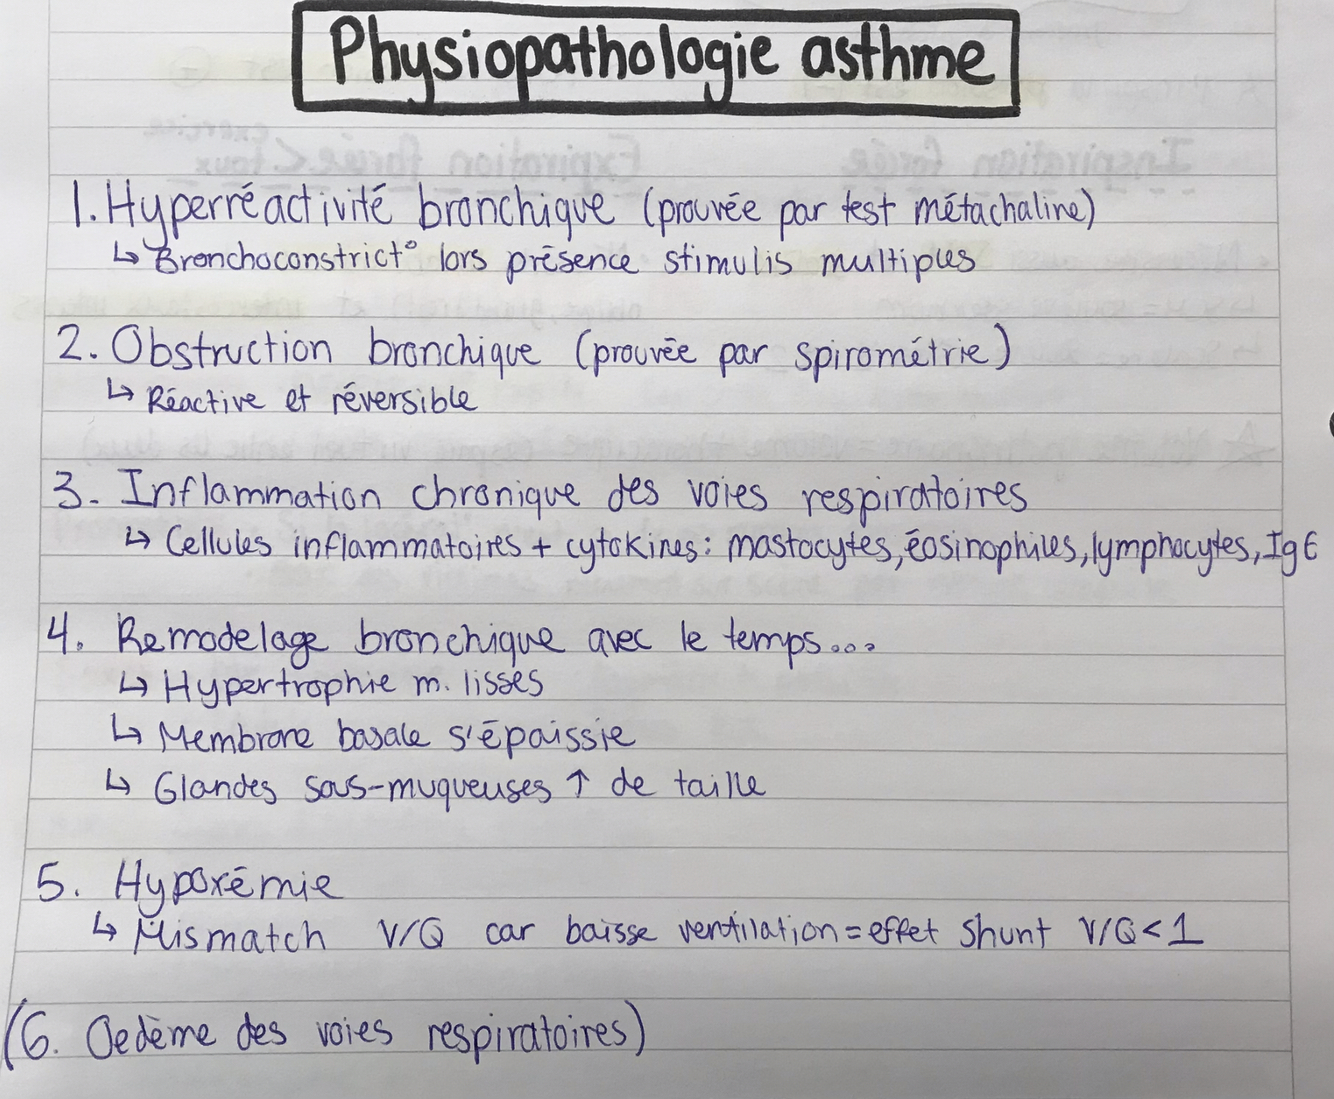 Physiopathologie asthme
1. Hyperréactivité bronchique (prouvée par test métachaline)
↳ Bronchoconstrict° lors présence stimulis multiples
2. Obstruction bronchique (prouvée par spirométrie)
↳ Réactive et réversible
3. Inflammation chronique des voies respiratoires
↳ Cellules inflammatoires + cytokines: mastocytes, éosinophiles, lymphocytes, IgE
4. Remodelage bronchique avec le temps...
↳ Hypertrophie m. lisses
↳ Membrane basale s'épaissie
↳ Glandes sous-muqueuses ↑ de taille
5. Hypoxémie
↳ Mismatch V/Q car baisse ventilation = effet shunt V/Q < 1
(6. Oedème des voies respiratoires)